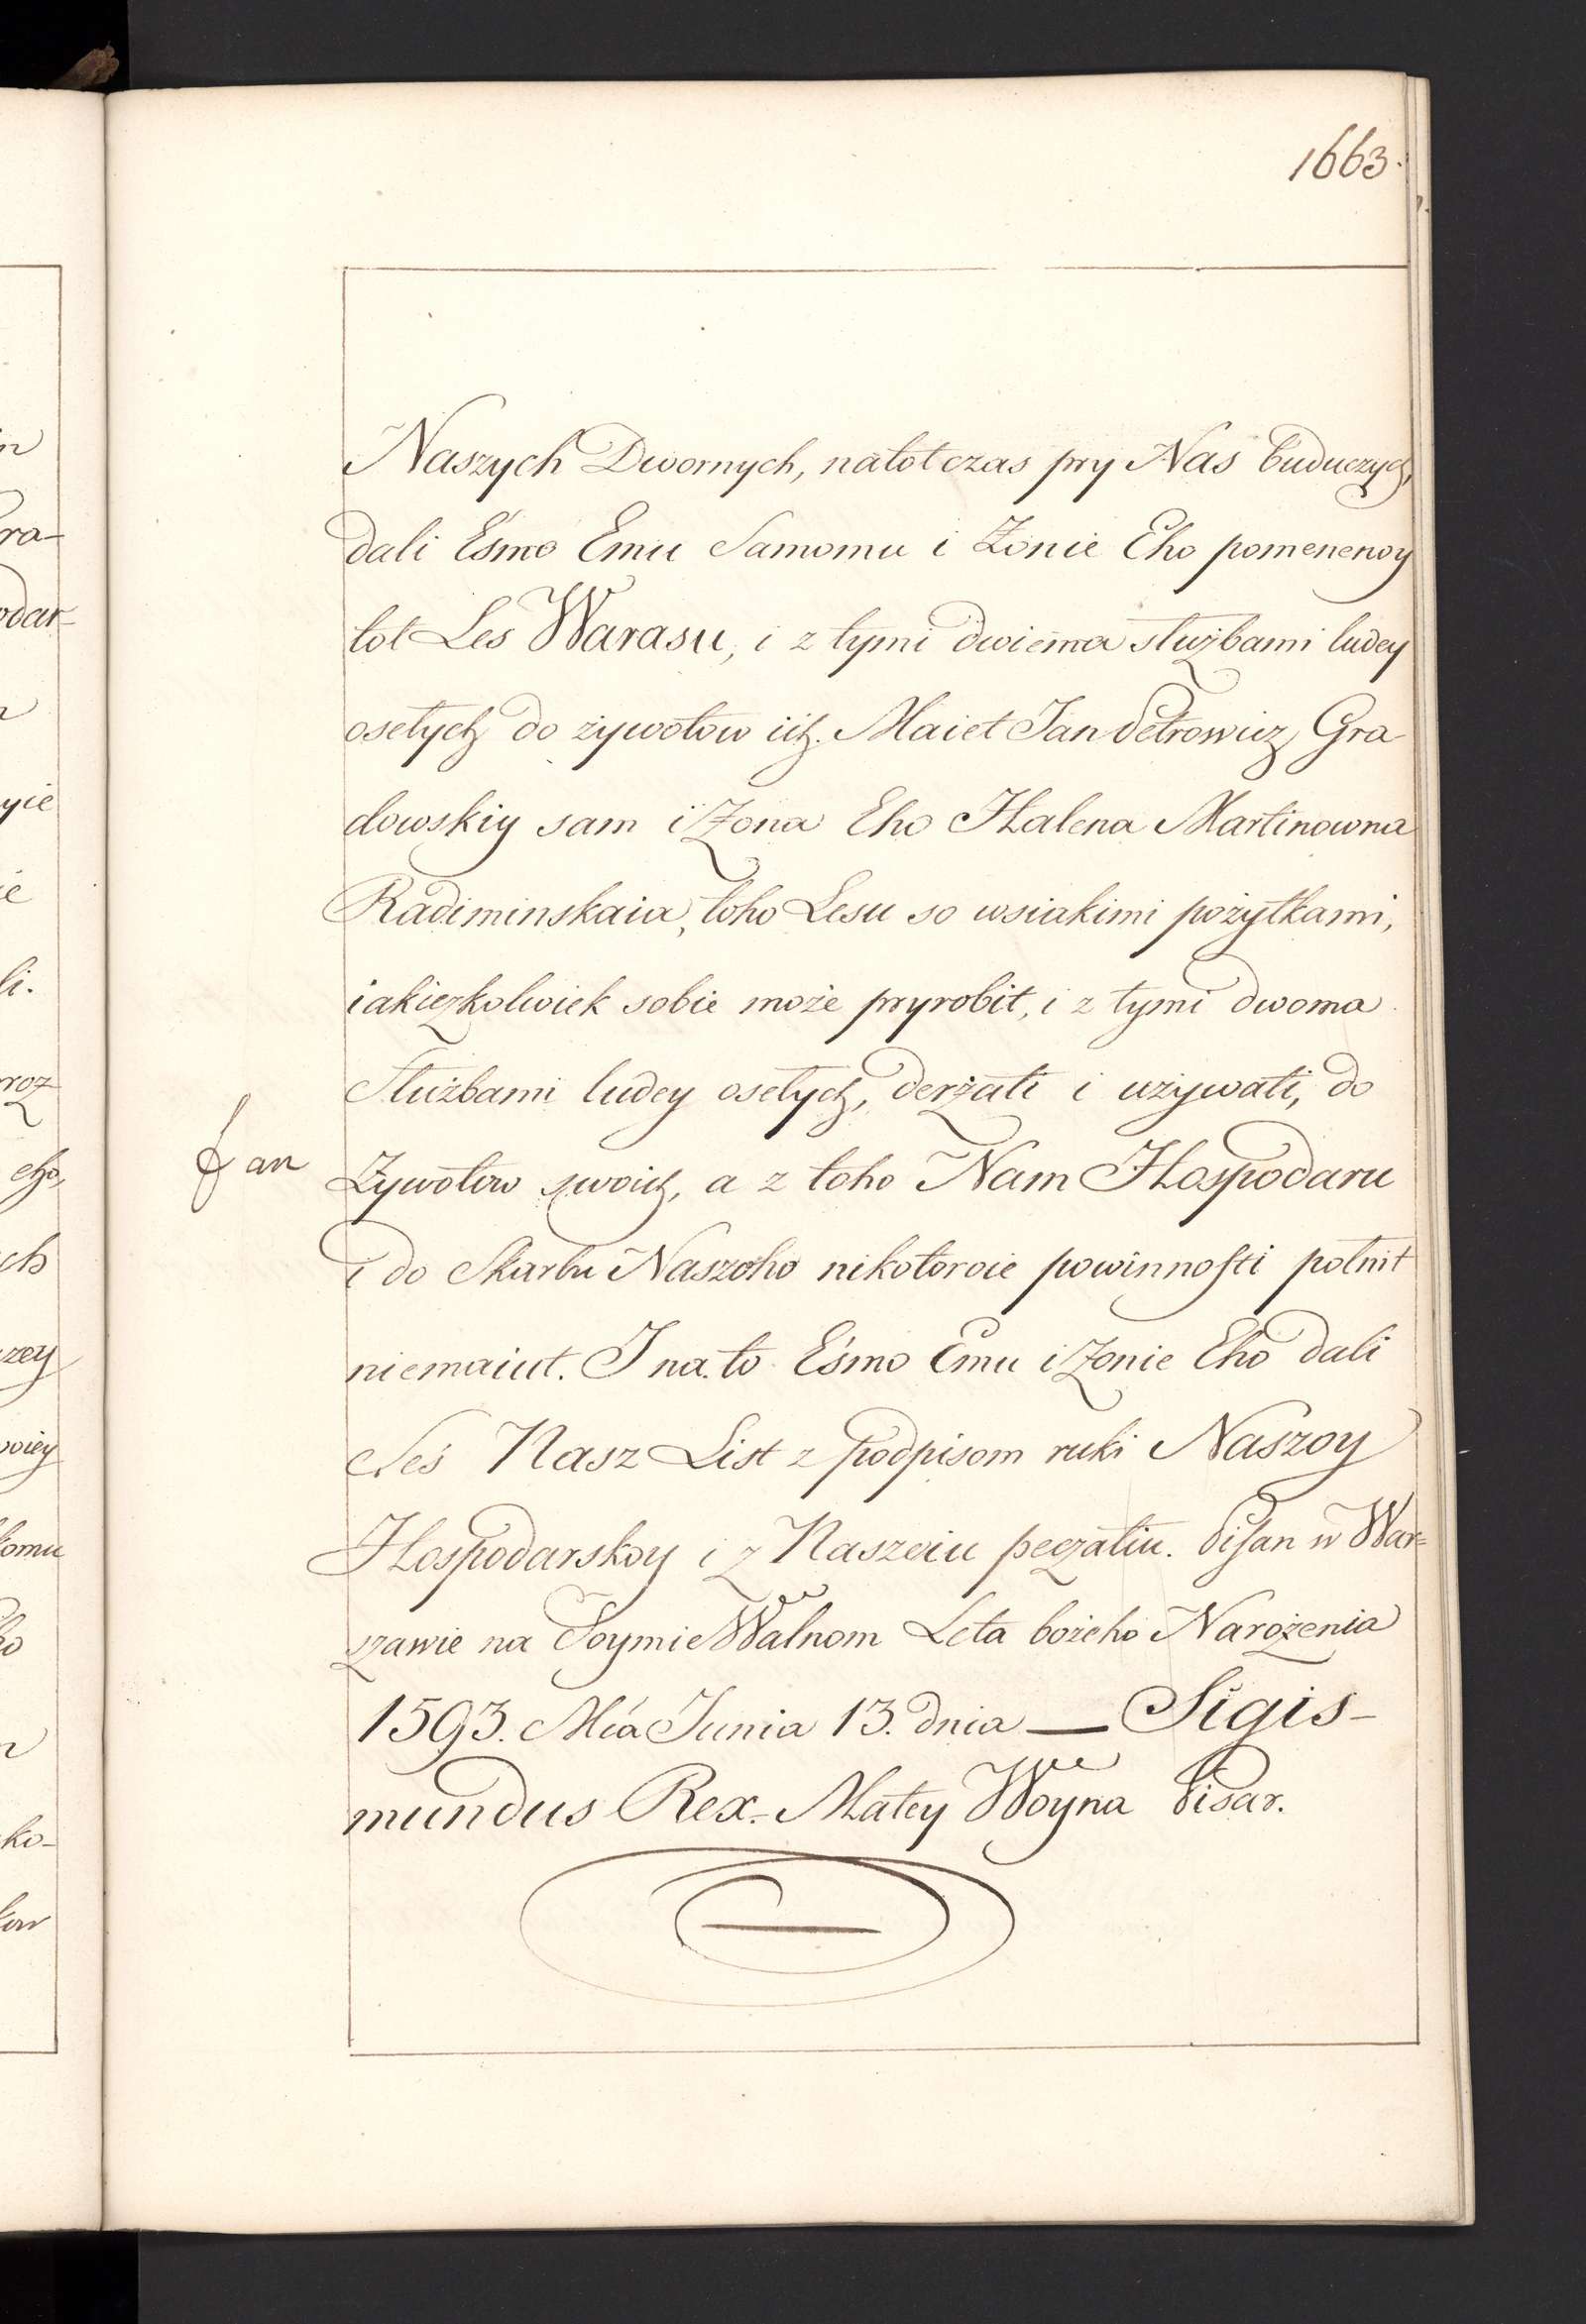 1663.
Naszych Dwornych, natot czas pry Nas buduczych,
dali Eśmo Emu Samomu i Żonie Eho pomenenoy
tot Les Warasu, i z tymi dwiema służbami ludey
osełych do żywotow ich. Maiet Jan Petrowicz Gra-
dowskiy sam i Żona Eho Halena Martinowna
Radiminskaia, toho Lesu so wsiakimi pożytkami,
iakiezkolwiek sobie może pryrobit, i z tymi dwoma
Służbami ludey osełych, derżati i używati, do
Żywotow swoich, a z toho Nam Hospodaru
i do Skarbu Naszoho nikotoroie powinnosti połnit
niemaiut. I na to Eśmo Emu i Żonie Eho dali
Seś Nasz List z podpisom ruki Naszoy
Hospodarskoy i z Naszeiu peczatiu. Pisan w War=
szawie na Soymie Walnom Leta bożeho Narożenia
1593. Mća Junia 13. dnia — Sigis-
mundus Rex. Matey Woyna Pisar.